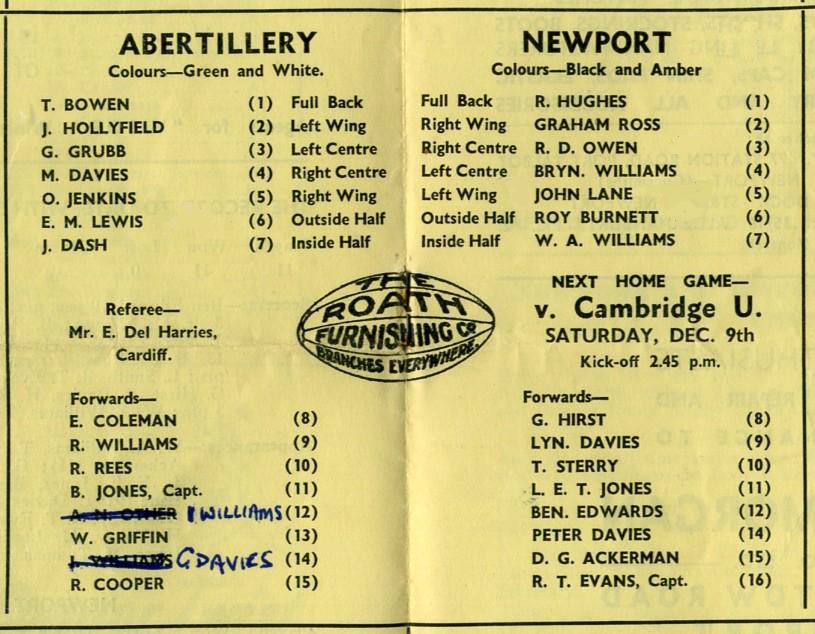 ABERTILLERY
Colours—Green and White.
T. BOWEN (1) Full Back
J. HOLLYFIELD (2) Left Wing
G. GRUBB (3) Left Centre
M. DAVIES (4) Right Centre
O. JENKINS (5) Right Wing
E. M. LEWIS (6) Outside Half
J. DASH (7) Inside Half
NEWPORT
Colours—Black and Amber
Full Back R. HUGHES (1)
Right Wing GRAHAM ROSS (2)
Right Centre R. D. OWEN (3)
Left Centre BRYN. WILLIAMS (4)
Left Wing JOHN LANE (5)
Outside Half ROY BURNETT (6)
Inside Half W. A. WILLIAMS (7)
Referee—
Mr. E. Del Harries,
Cardiff.
THE
ROATH
FURNISHING CO
BRANCHES EVERYWHERE.
NEXT HOME GAME—
v. Cambridge U.
SATURDAY, DEC. 9th
Kick-off 2.45 p.m.
Forwards—
E. COLEMAN (8)
R. WILLIAMS (9)
R. REES (10)
B. JONES, Capt. (11)
A. N. OTHER I WILLIAMS (12)
W. GRIFFIN (13)
I. WILLIAMS G DAVIES (14)
R. COOPER (15)
Forwards—
G. HIRST (8)
LYN. DAVIES (9)
T. STERRY (10)
L. E. T. JONES (11)
BEN. EDWARDS (12)
PETER DAVIES (14)
D. G. ACKERMAN (15)
R. T. EVANS, Capt. (16)